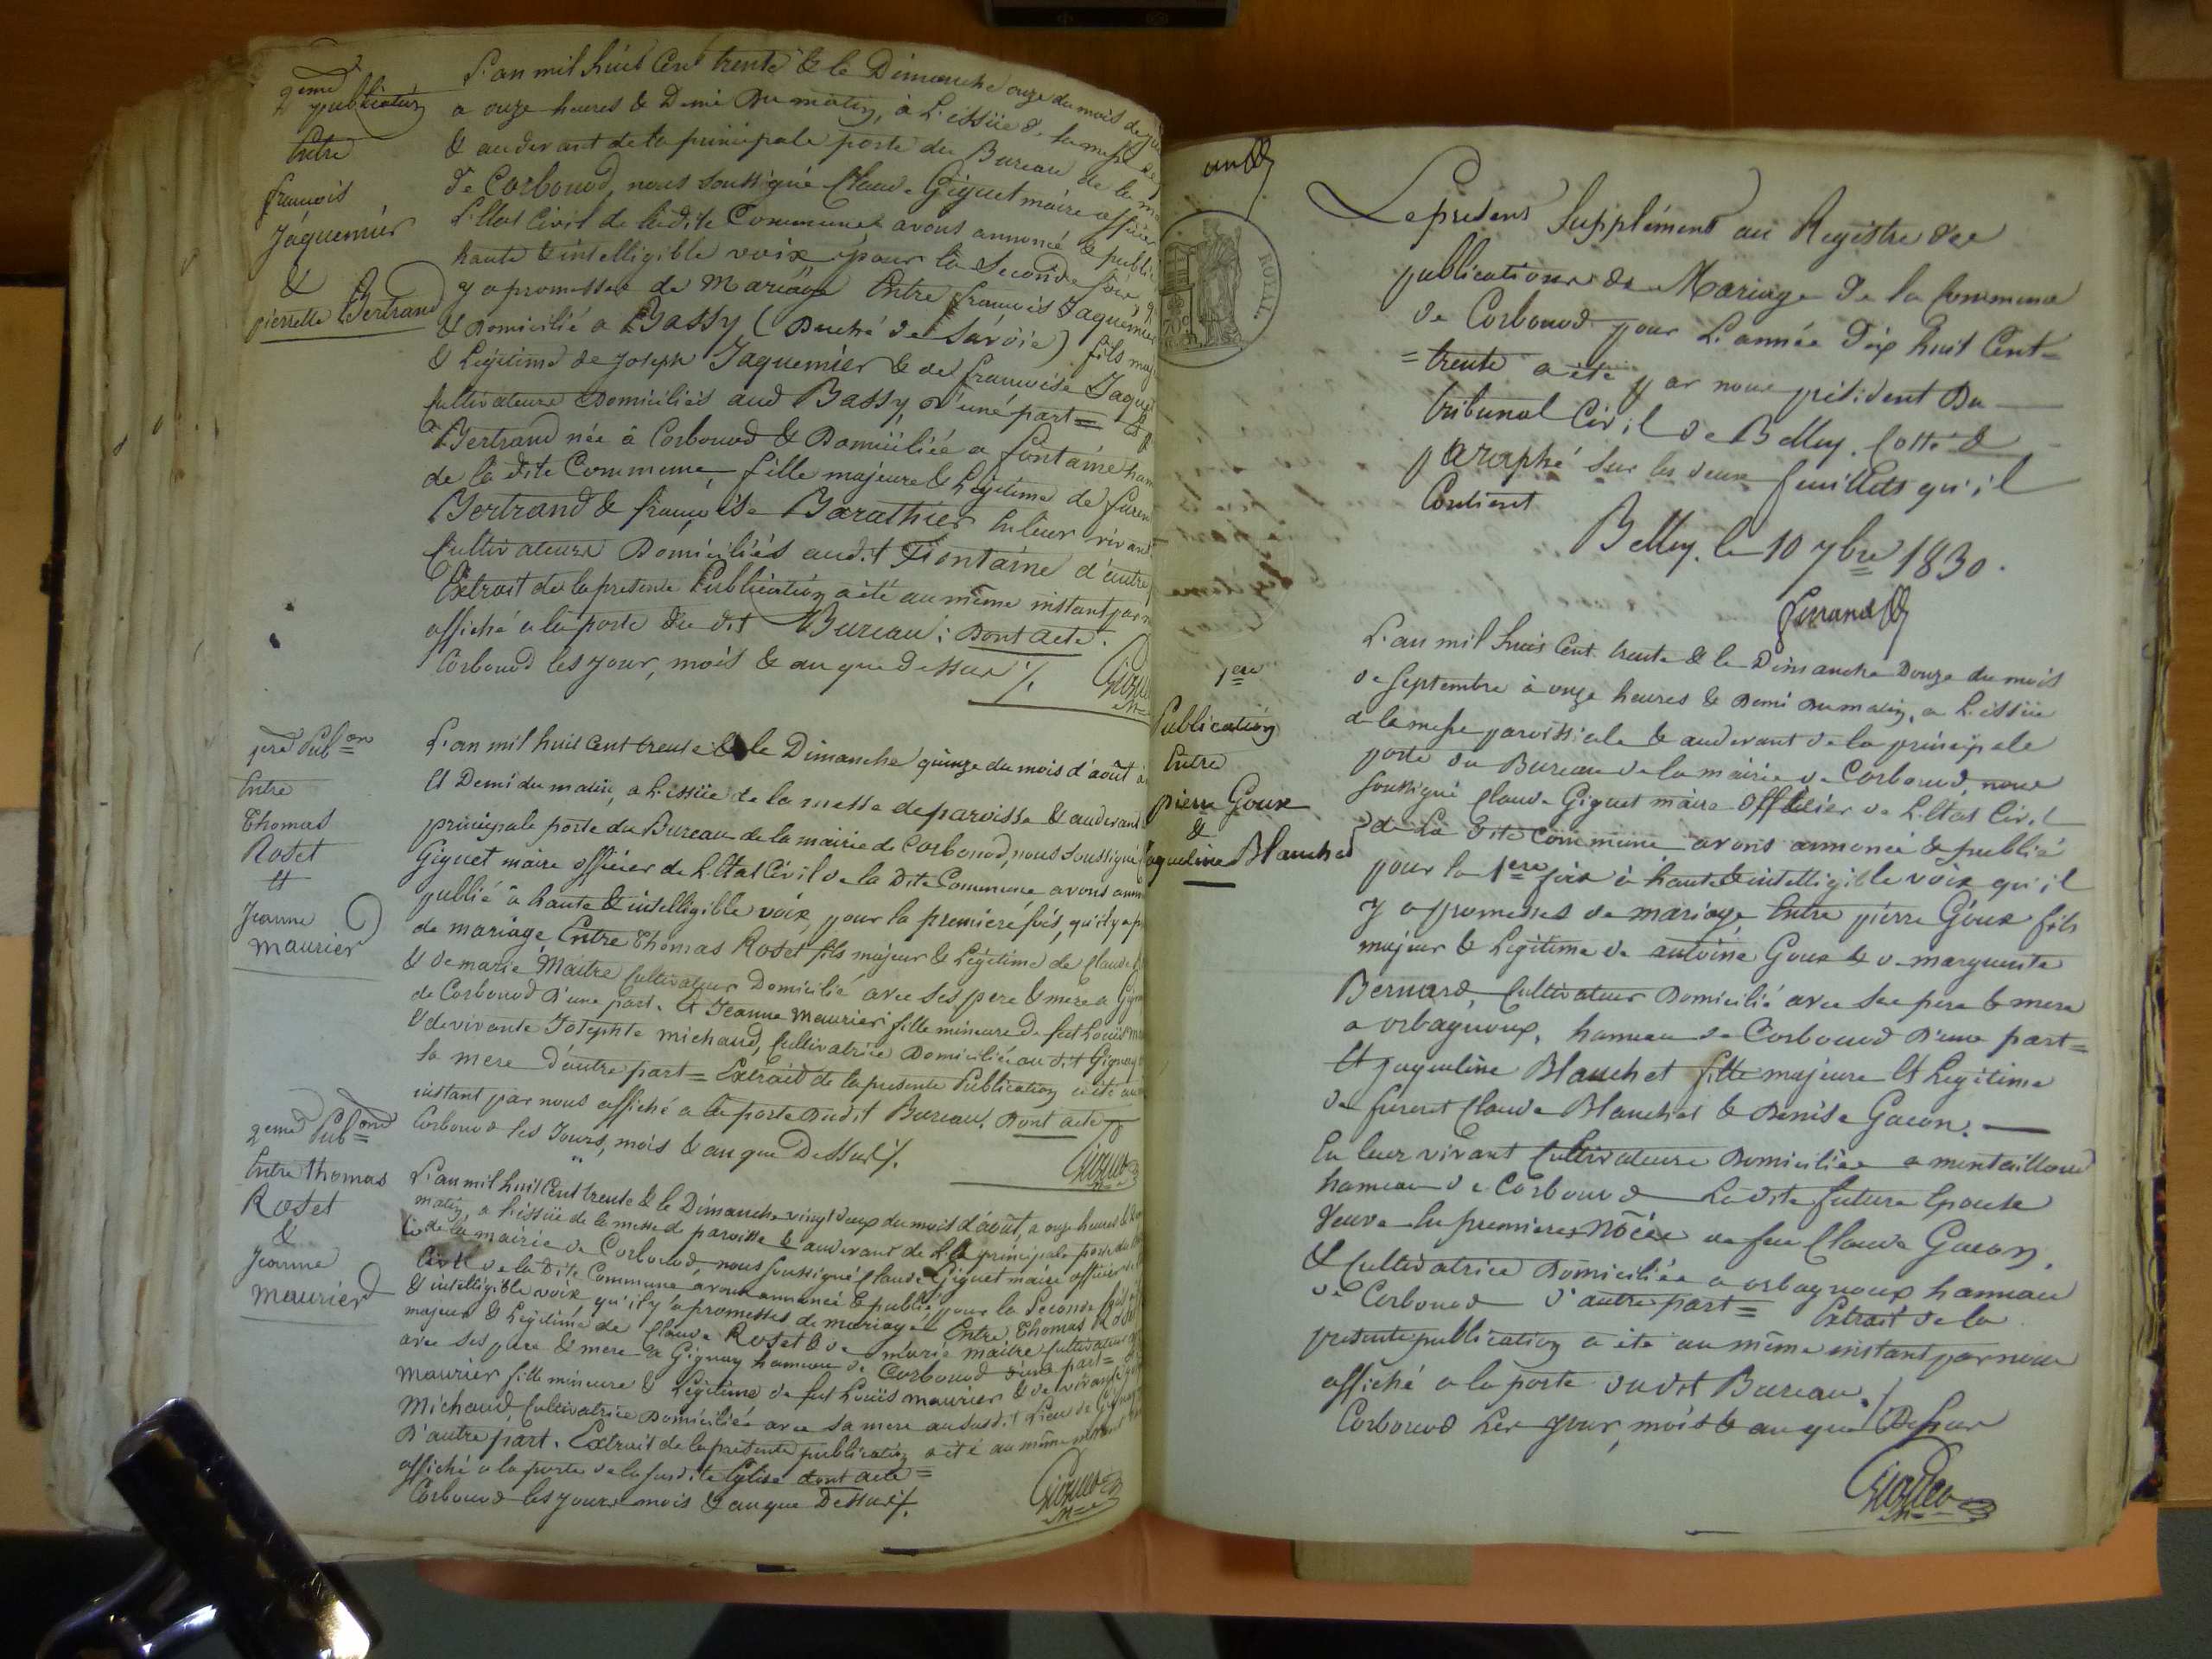 2eme publication
Entre
françois
Jaquemier
&
pierrette Bertrand
L'an mil huit Cent trente & le Dimanche onze du mois de
a onze heures & Demi Du matin, à L'issüe de la messe de
& au devant de la principale porte du Bureau de la
de Corbonod, nous soussigné Claude Giguet maire officier
L'Etat Civil de ladite Commune, avons annoncé & publié
haute & intelligible voix, pour la Seconde fois, q
y a promesses de Mariage Entre françois Jaquemier
& Domicilié a Bassy (Duché de Savoie) fils maj
& Legitime de Joseph Jaquemier & de françoise Jaque
Cultivateurs Domiciliés aud Bassy d'une part= Et
Bertrand née à Corbonod & Domiciliée a fontaine ham
de la dite Commune, fille majeure & Legitime de furent
Bertrand & françoise Barathier En leur vivant
Cultivateurs Domiciliés audit Fontaine d'autre
Extrait de la presente Publication a été au même instant par n
affiché a la porte du dit Bureau: Dont acte.
Corbonod les jour, mois & an que Dessus ./.
Giguet
1ere Pubon
Entre
Thomas
Roset
Et
Jeanne
maurier
L'an mil huit Cent trente & le Dimanche quinze du mois d'août à
Et Demi du matin, a L'issüe de la messe de paroisse & au devant
principale porte du Bureau de la mairie de Corbonod, nous soussigné
Giguet maire officier de L'Etat Civil de la Dite Commune avons ann
publié à haute & intelligible voix, pour la premiere fois, qu'il y a p
de mariage Entre Thomas Roset fils majeur & Légitime de Claude
& de marie Maitre Cultivateur Domicilié avec Ses pere & mere a Gign
de Corbonod d'une part. Et Jeanne maurier fille mineure de fut Louis
& de vivante Josephte michaud, Cultivatrice Domiciliée au dit Gignay
Sa mere d'autre part= Extrait de la presente Publication a été au
instant par nous affiché a la porte Dudit Bureau, Dont acte
Corbonod les Jours, mois & an que Dessus ./.
Giguet
2eme Pubon
Entre Thomas
Roset
&
Jeanne
maurier
L'an mil huit Cent trente & le Dimanche vingt deux du mois d'août, a onze heures &
matin, a L'issüe de la messe de paroisse & au devant de La principale porte du
de la mairie de Corbonod, nous soussigné Claude Giguet maire officier
Civil de la Dite Commune, avons annoncé & publié pour la Seconde fois
& intelligible voix qu'il y a promesses de mariage Entre Thomas Roset
majeur & Legitime de Claude Roset & de marie maitre Cultivateur
avec Ses pere & mere a Gignay hameau de Corbonod d'une part=
maurier fille mineure & Légitime de fut Louis maurier & de vivante
Michaud, Cultivatrice Domiciliée avec Sa mere au Susdit Lieu de Gignay
D'autre part. Extrait de la presente publication a été au même instant
affiché a la porte de la susdite Eglise dont acte=
Corbonod les jour mois & an que Dessus ./.
Giguet
un
ROYAL
70c
Le present Supplément au Registre des
publications de Mariage de la Commune
de Corbonod pour L'année Dix huit Cent=
=trente a été par nous président Du
tribunal Civil de Belley, Cotté &
paraphé sur les deux feuillets qu'il
Contient
Belley, le 10 7bre 1830.
1ere
Publication
Entre
pierre Goux
&
jaqueline Blanchet
L'an mil huit Cent trente & le Dimanche Douze du mois
de Septembre à onze heures & Demi du matin, a L'issüe
de la messe paroissiale & au devant de la principale
porte du Bureau de la mairie de Corbonod, nous
soussigné Claude Giguet maire officier de L'Etat Civil
de La Dite Commune avons annoncé & publié
pour la 1ere fois à haute & intelligible voix qu'il
y a promesses de mariage, Entre pierre Goux fils
majeur & Legitime de antoine Goux & de marguerite
Bernard, Cultivateur Domicilié avec Ses pere & mere
a orbagnoux, hameau de Corbonod d'une part=
Et jaqueline Blanchet fille majeure Et Legitime
de furent Claude Blanchet & Denise Gacon.
En leur vivant Cultivateurs Domiciliés a montailloud
hameau de Corbonod Ladite future Epouse
Veuve En premieres Nôces de feu Claude Gacon,
& Cultivatrice Domiciliée a orbagnoux hameau
de Corbonod D'autre part= Extrait de la
presente publication a été au même instant par nous
affiché a la porte du dit Bureau ./.
Corbonod Les jour, mois & an que Dessus
Giguet